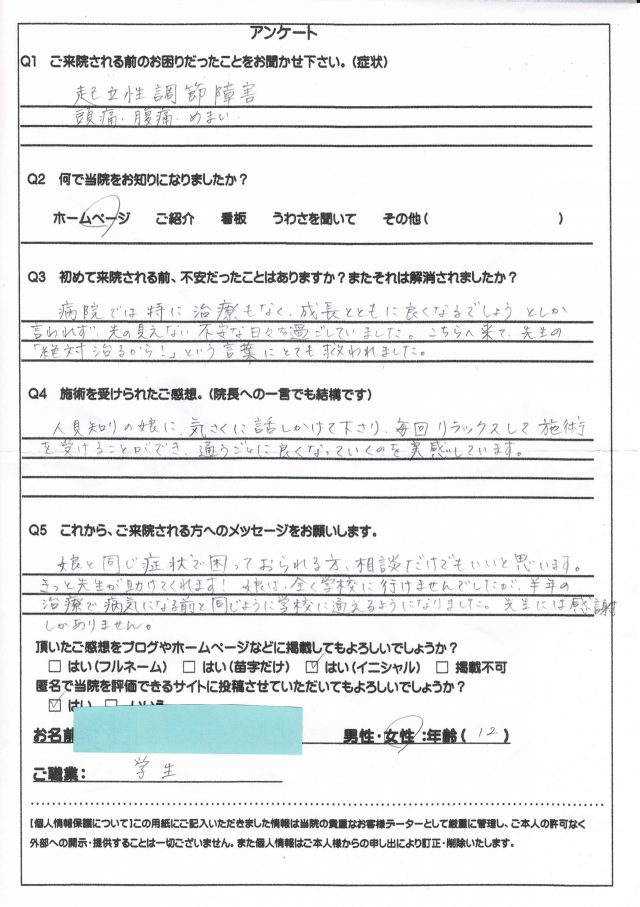 アンケート
Q1 ご来院される前のお困りだったことをお聞かせ下さい。(症状)
起立性調節障害
頭痛・腹痛・めまい
Q2 何で当院をお知りになりましたか？
ホームページ ご紹介 看板 うわさを聞いて その他( )
Q3 初めて来院される前、不安だったことはありますか？またそれは解消されましたか？
病院では特に治療もなく、成長とともに良くなるでしょう としか
言われず、先の見えない不安な日々を過ごしていました。こちらへ来て、先生の
「絶対治るから！」という言葉にとても救われました。
Q4 施術を受けられたご感想。(院長への一言でも結構です)
人見知りの娘に、気さくに話しかけて下さり、毎回リラックスして施術
を受けることができ、通うごとに良くなっていくのを実感しています。
Q5 これから、ご来院される方へのメッセージをお願いします。
娘と同じ症状で困っておられる方、相談だけでもいいと思います。
きっと先生が助けてくれます！娘は、全く学校に行けませんでしたが、半年の
治療で病気になる前と同じように学校に通えるようになりました。先生には感謝
しかありません。
頂いたご感想をブログやホームページなどに掲載してもよろしいでしょうか？
□ はい(フルネーム) □ はい(苗字だけ) ☑ はい(イニシャル) □ 掲載不可
匿名で当院を評価できるサイトに投稿させていただいてもよろしいでしょうか？
☑ はい □ いいえ
お名前 男性・女性：年齢( 12 )
ご職業： 学生
【個人情報保護について】この用紙にご記入いただきました情報は当院の貴重なお客様データーとして厳重に管理し、ご本人の許可なく
外部への開示・提供することは一切ございません。また個人情報はご本人様からの申し出により訂正・削除いたします。